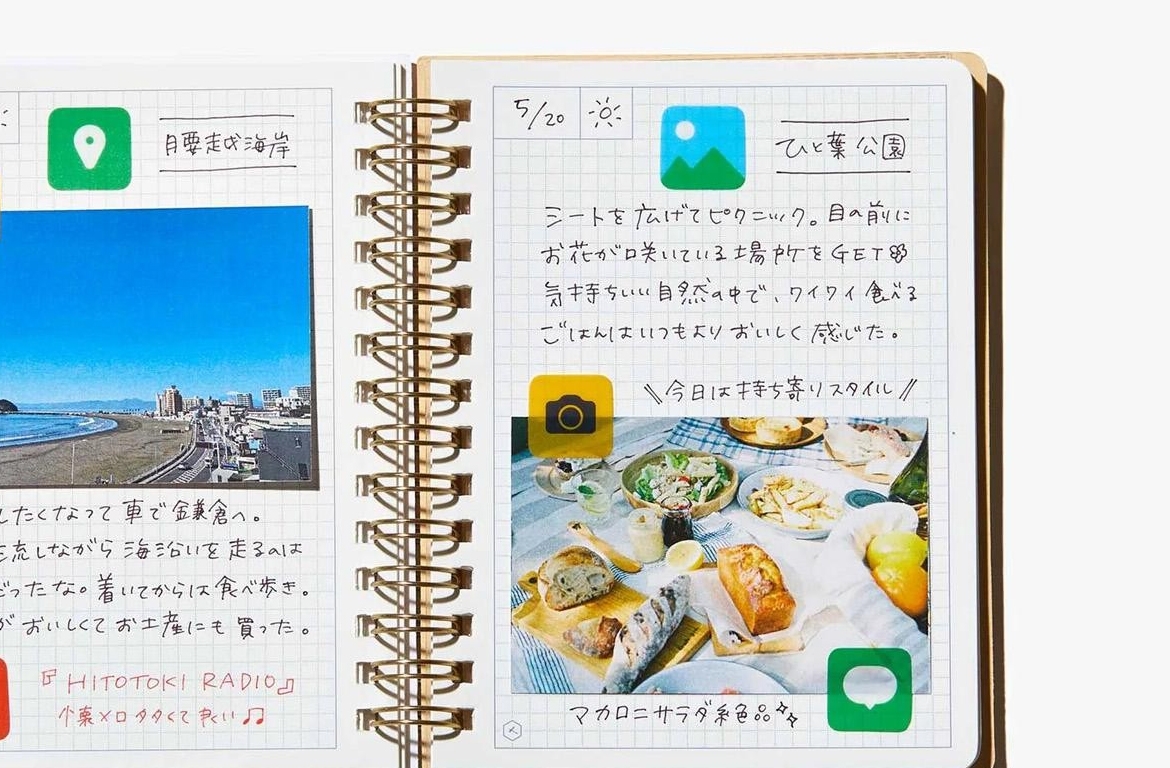 腰越海岸
したくなって車で鎌倉へ。
流しながら海沿いを走るのは
だったな。着いてからは食べ歩き。
がおいしくてお土産にも買った。
『HITOTOKI RADIO』
懐メロタタくて良い♫
5/20
ひと葉公園
シートを広げてピクニック。目の前に
お花が咲いている場所をGET
気持ちいい自然の中で、ワイワイ食べる
ごはんはいつもよりおいしく感じた。
\\今日は持ち寄りスタイル//
マカロニサラダ絶品